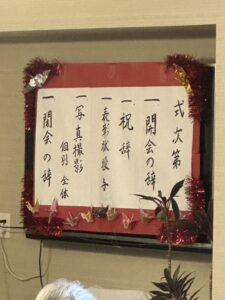 式次第
一 開会の辞
一 祝辞
一 表彰状授与
一 写真撮影
個別 全体
一 閉会の辞